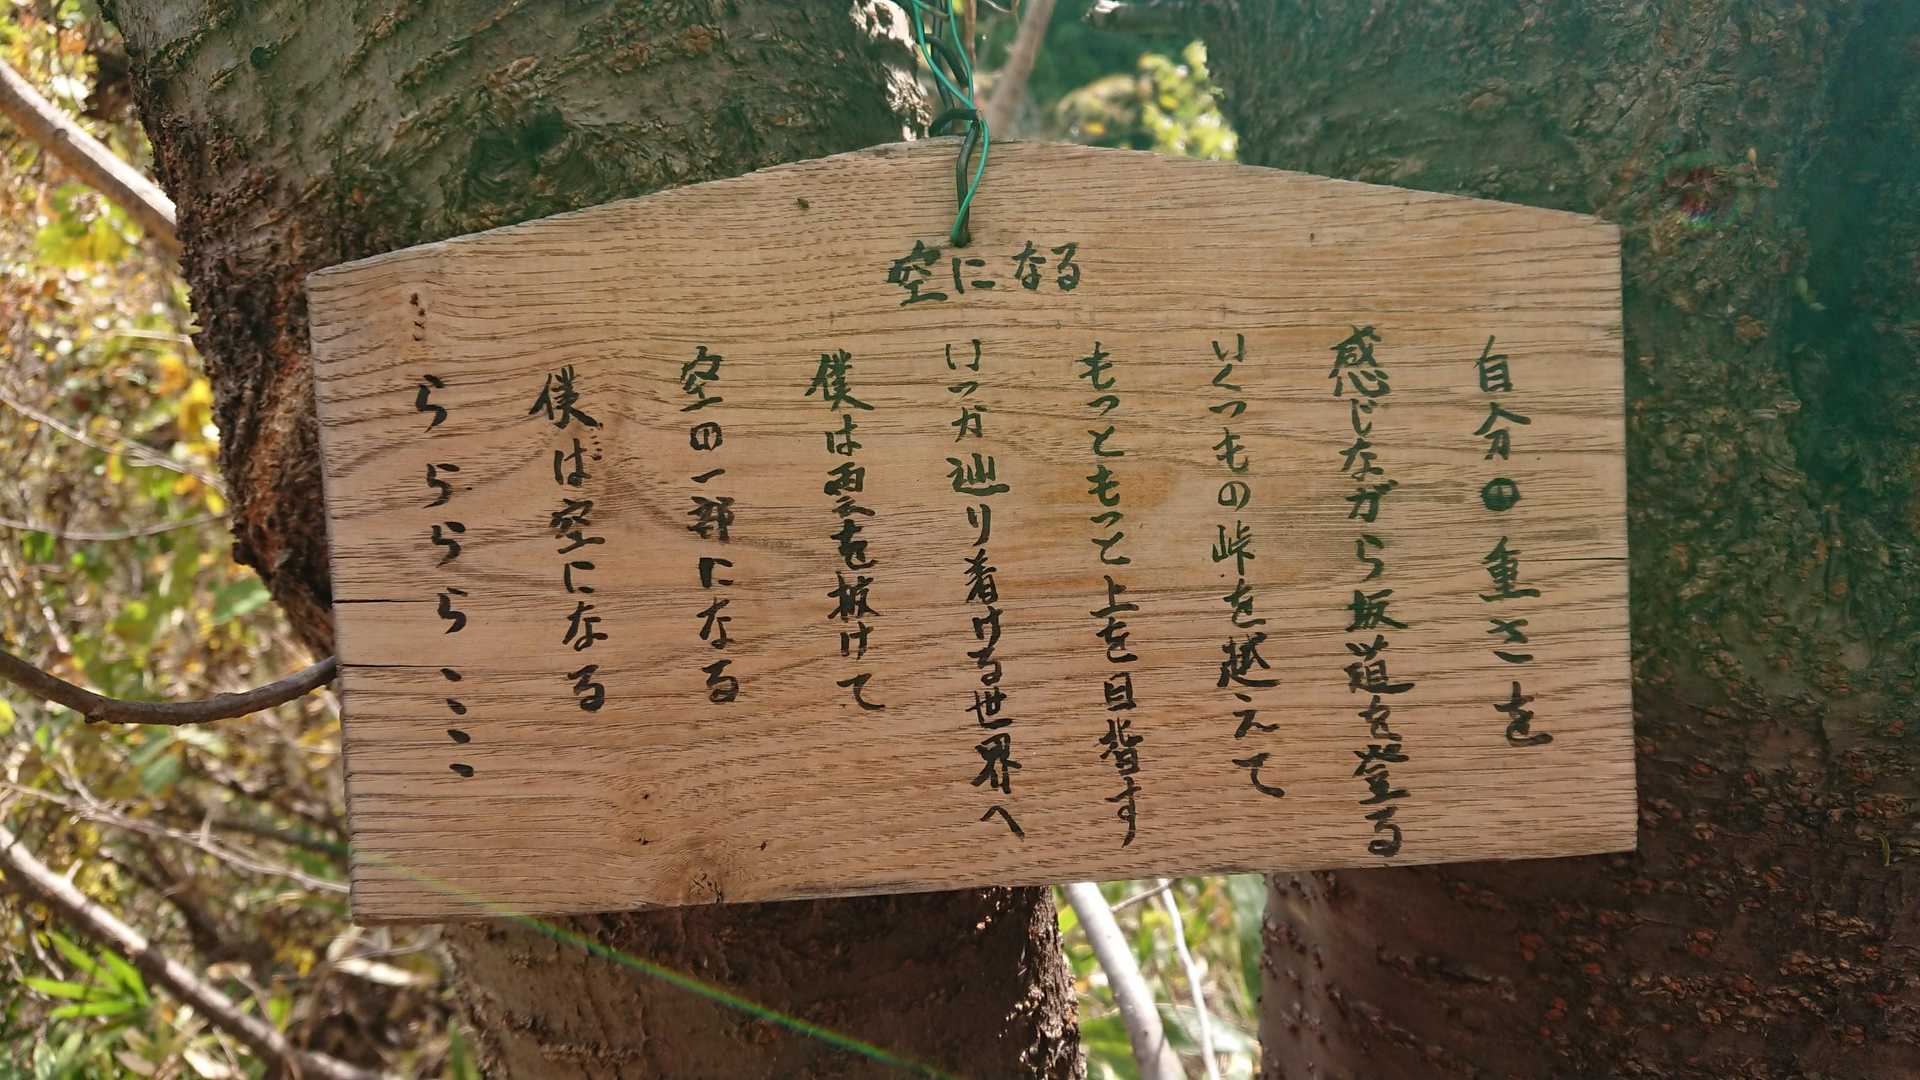 空になる
自分の重さを
感じながら坂道を登る
いくつもの峠を越えて
もっともっと上を目指す
いつか辿り着ける世界へ
僕は雲を抜けて
空の一部になる
僕は空になる
ららららら、、、、